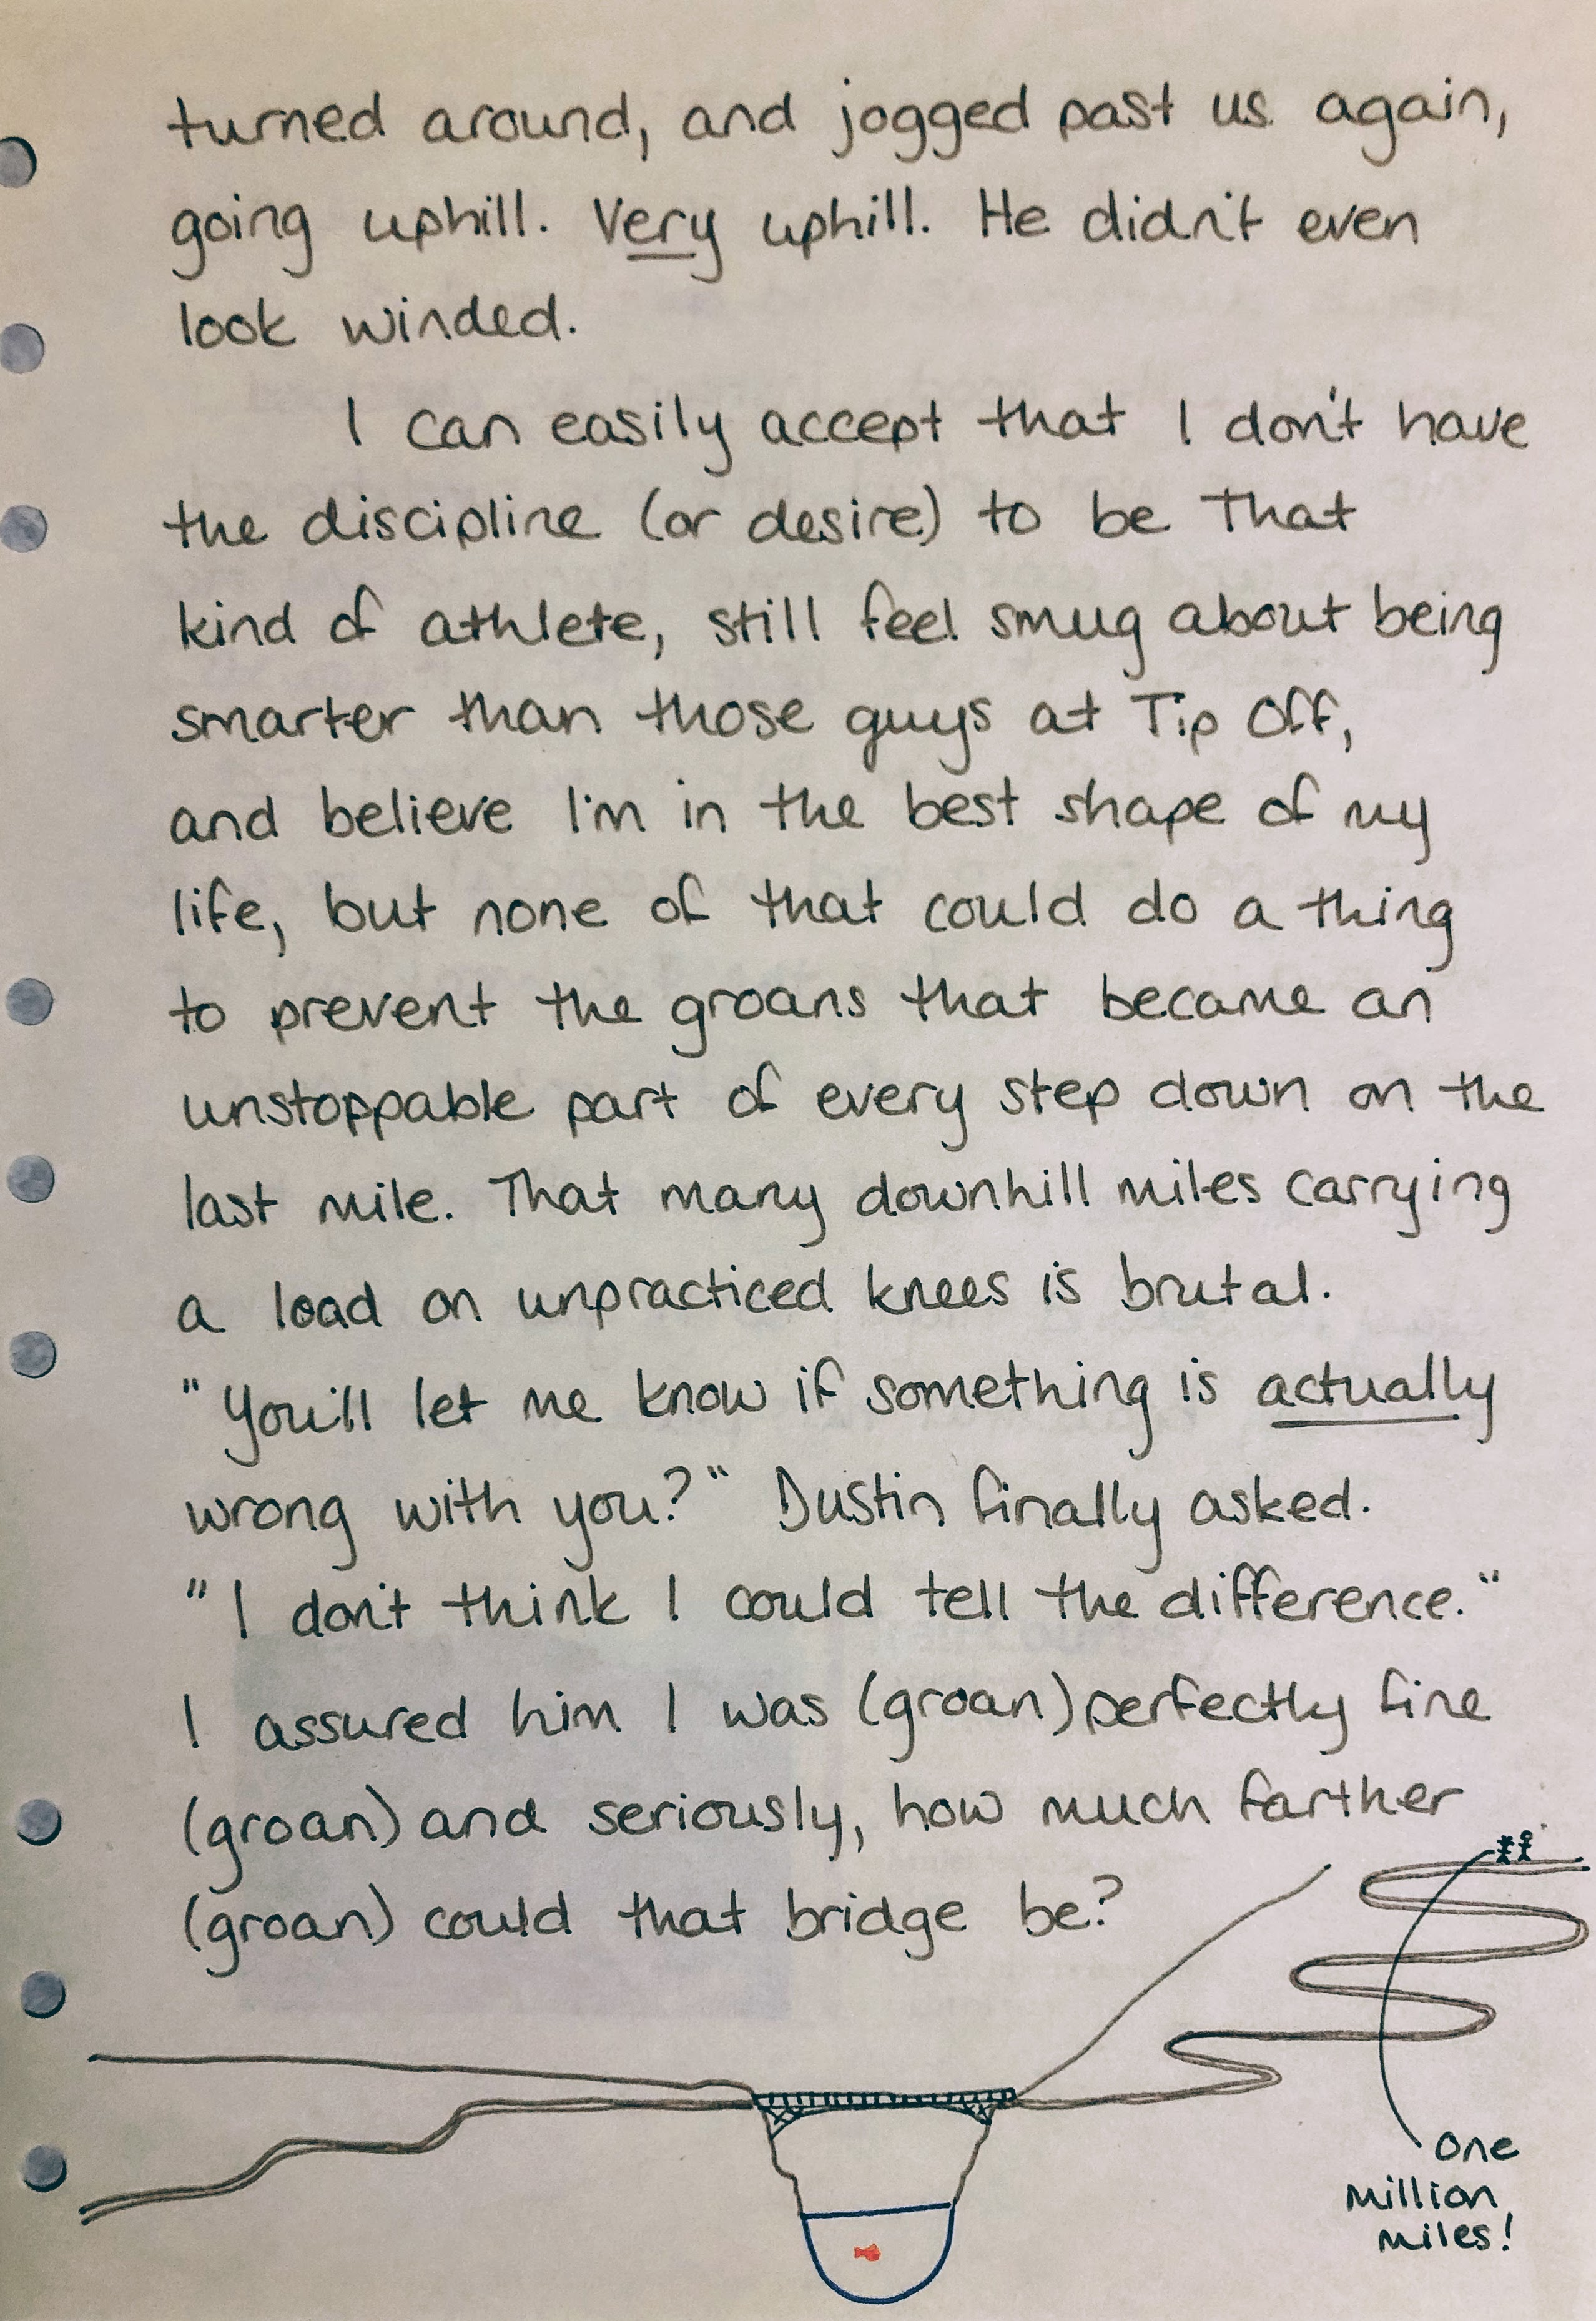 turned around, and jogged past us again,
going uphill. Very uphill. He didn't even
look winded.
I can easily accept that I don't have
the discipline (or desire) to be that
kind of athlete, still feel smug about being
smarter than those guys at Tip Off,
and believe I'm in the best shape of my
life, but none of that could do a thing
to prevent the groans that became an
unstoppable part of every step down on the
last mile. That many downhill miles carrying
a load on unpracticed knees is brutal.
"You'll let me know if something is actually
wrong with you?" Dustin finally asked.
"I don't think I could tell the difference."
I assured him I was (groan) perfectly fine
(groan) and seriously, how much farther
(groan) could that bridge be?
One
Million
Miles!